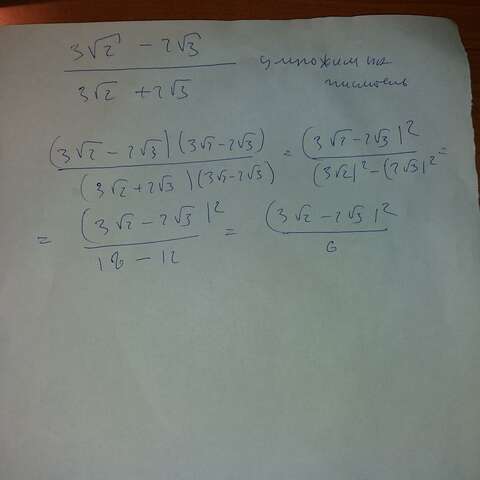 3√2 - 2√3 / 3√2 + 2√3 умножим на
числитель
(3√2 - 2√3)(3√2 - 2√3) / (3√2 + 2√3)(3√2 - 2√3) = (3√2 - 2√3)² / (3√2)² - (2√3)² =
= (3√2 - 2√3)² / 18 - 12 = (3√2 - 2√3)² / 6